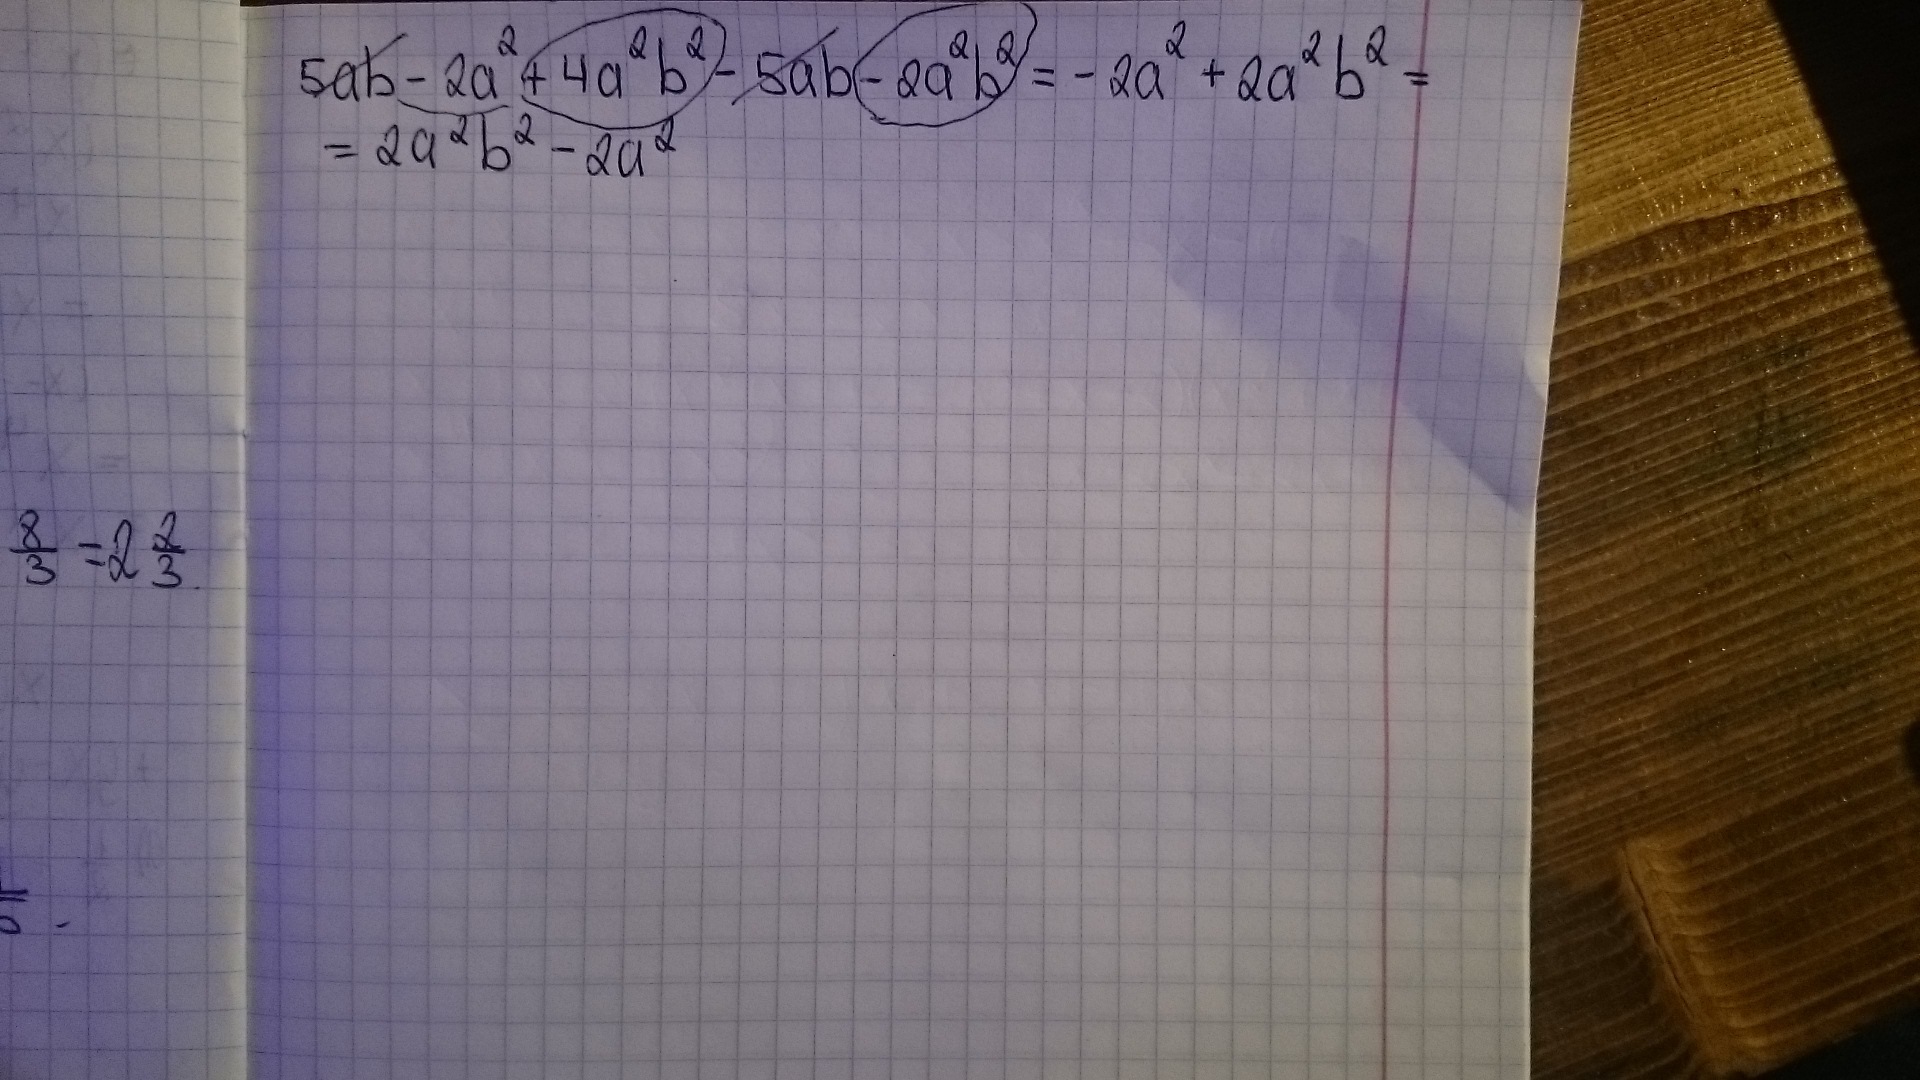 5ab - 2a² + 4a²b² - 5ab - 2a²b² = -2a² + 2a²b² =
= 2a²b² - 2a²
8/3 = 2 2/3